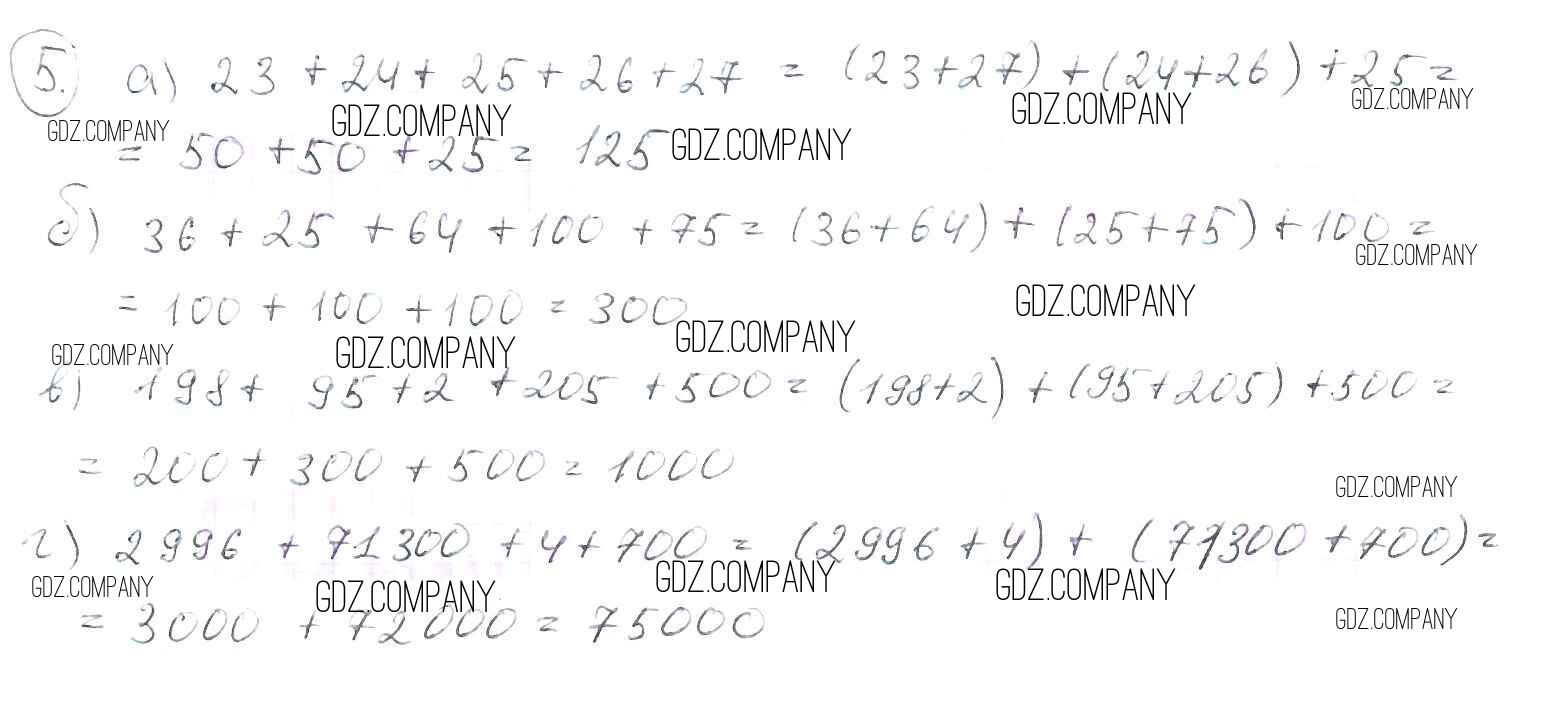 5. а) 23 + 24 + 25 + 26 + 27 = (23+27) + (24+26) + 25 =
GDZ.COMPANY GDZ.COMPANY GDZ.COMPANY GDZ.COMPANY GDZ.COMPANY
= 50 + 50 + 25 = 125
б) 36 + 25 + 64 + 100 + 75 = (36+64) + (25+75) + 100 =
GDZ.COMPANY
= 100 + 100 + 100 = 300
GDZ.COMPANY GDZ.COMPANY GDZ.COMPANY GDZ.COMPANY
в) 198 + 95 + 2 + 205 + 500 = (198+2) + (95+205) + 500 =
= 200 + 300 + 500 = 1000
GDZ.COMPANY
г) 2996 + 71300 + 4 + 700 = (2996 + 4) + (71300 + 700) =
GDZ.COMPANY GDZ.COMPANY GDZ.COMPANY GDZ.COMPANY
= 3000 + 72000 = 75000
GDZ.COMPANY